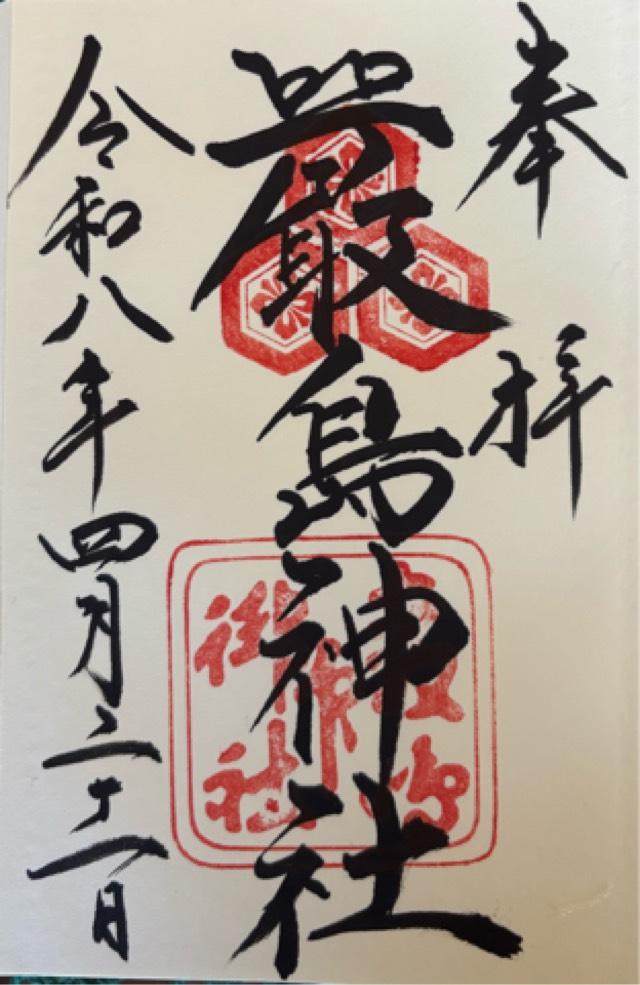 奉拝
嚴島神社
令和八年四月二十一日